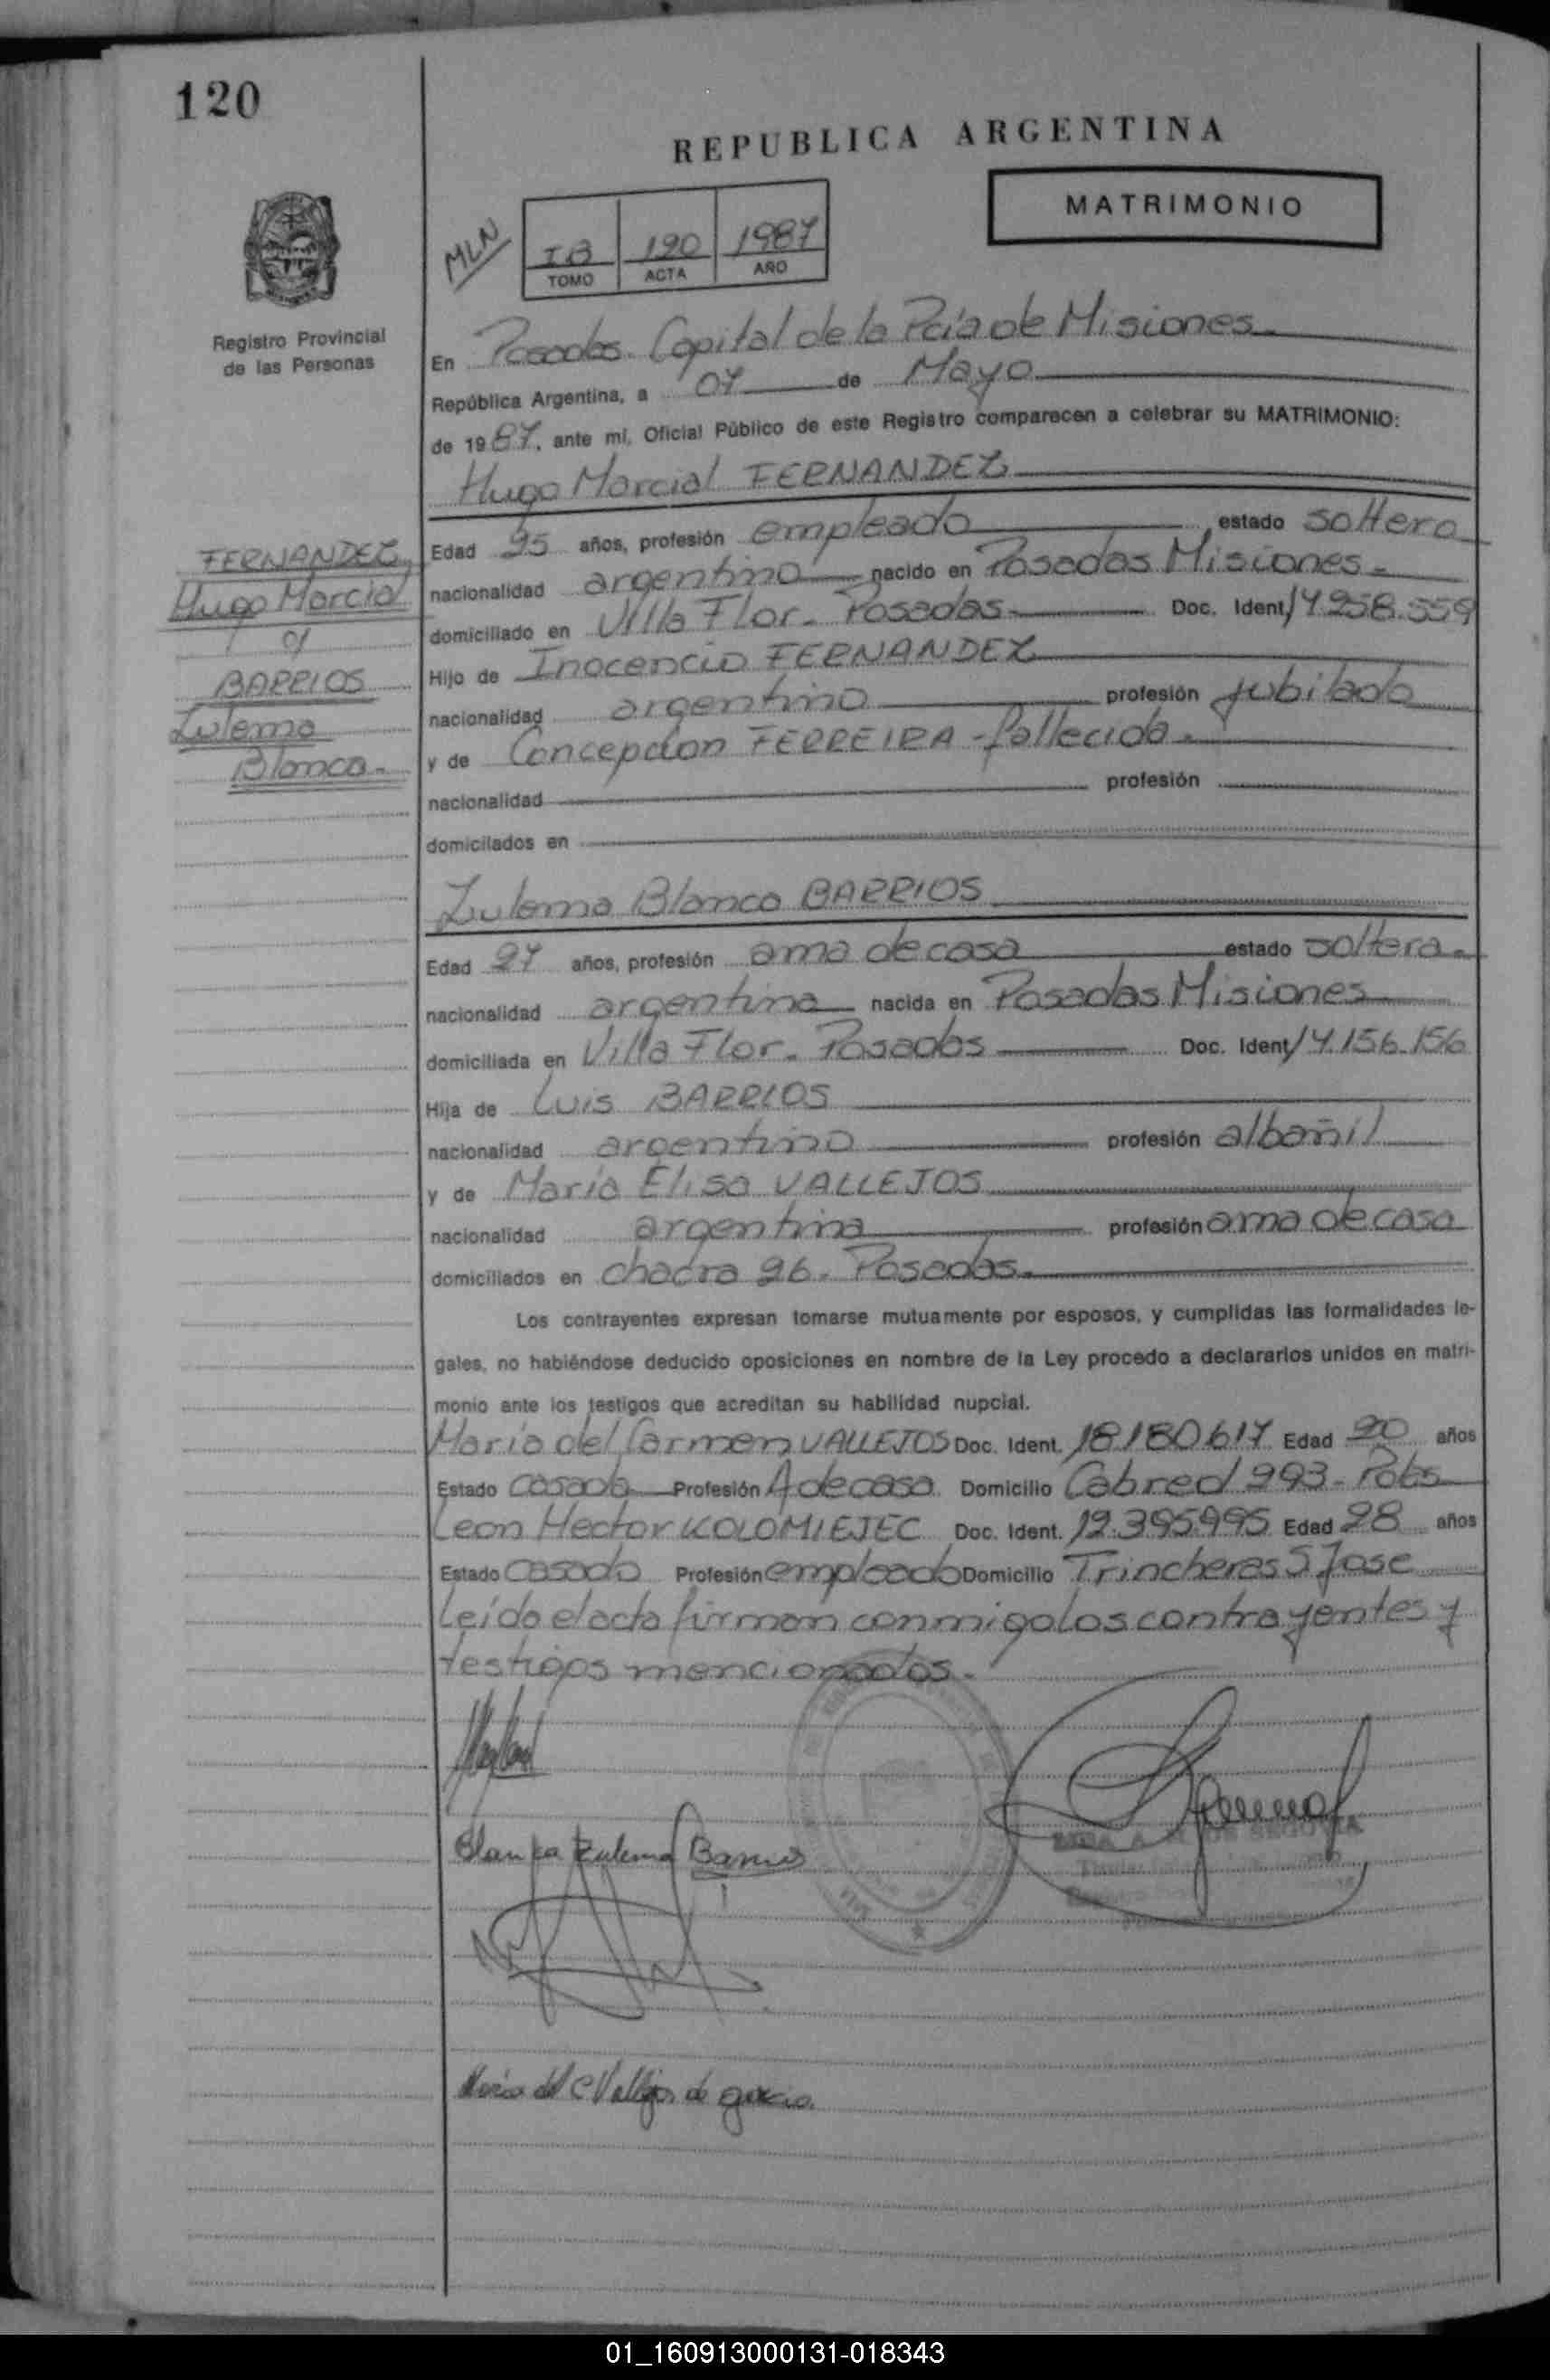 120
REPUBLICA ARGENTINA
MATRIMONIO
MLN
IB 120 1987
TOMO ACTA AÑO
Registro Provincial
de las Personas
En Posadas. Capital de la Pcia de Misiones
República Argentina, a 07 de Mayo
de 1987, ante mi, Oficial Público de este Registro comparecen a celebrar su MATRIMONIO:
Hugo Marcial FERNANDEZ
FERNANDEZ,
Hugo Marcial
c/
BARRIOS
Zulema
Blanca.-
Edad 25 años, profesión empleado estado soltero
nacionalidad argentino nacido en Posadas Misiones.-
domiciliado en Villa Flor. Posadas Doc. Ident. 17.258.559
Hijo de Inocencio FERNANDEZ
nacionalidad argentino profesión jubilado
y de Concepcion FERREIRA - fallecida.
nacionalidad profesión
domicilados en
Zulema Blanca BARRIOS
Edad 27 años, profesión ama de casa estado soltera.
nacionalidad argentina nacida en Posadas Misiones
domiciliada en Villa Flor. Posadas Doc. Ident. 14.156.156
Hija de Luis BARRIOS
nacionalidad argentino profesión albañil
y de María Elisa VALLEJOS
nacionalidad argentina profesión ama de casa
domiciliados en chacra 26. Posadas.
Los contrayentes expresan tomarse mutuamente por esposos, y cumplidas las formalidades le-
gales, no habiéndose deducido oposiciones en nombre de la Ley procedo a declararlos unidos en matri-
monio ante los testigos que acreditan su habilidad nupcial.
María del Carmen VALLEJOS Doc. Ident. 18.180.617 Edad 20 años
Estado casada Profesión A de casa Domicilio Cabred 293 - Pdas
Leon Hector KOLOMIEJEC Doc. Ident. 12.395.995 Edad 28 años
Estado casado Profesión empleado Domicilio Trincheras S Jose
Leído el acta firman conmigo los contrayentes y
testigos mencionados.-
Blanca Zulema Barrios
DE SEGOVIA
Titular
María del C Vallejos de
01_160913000131-018343